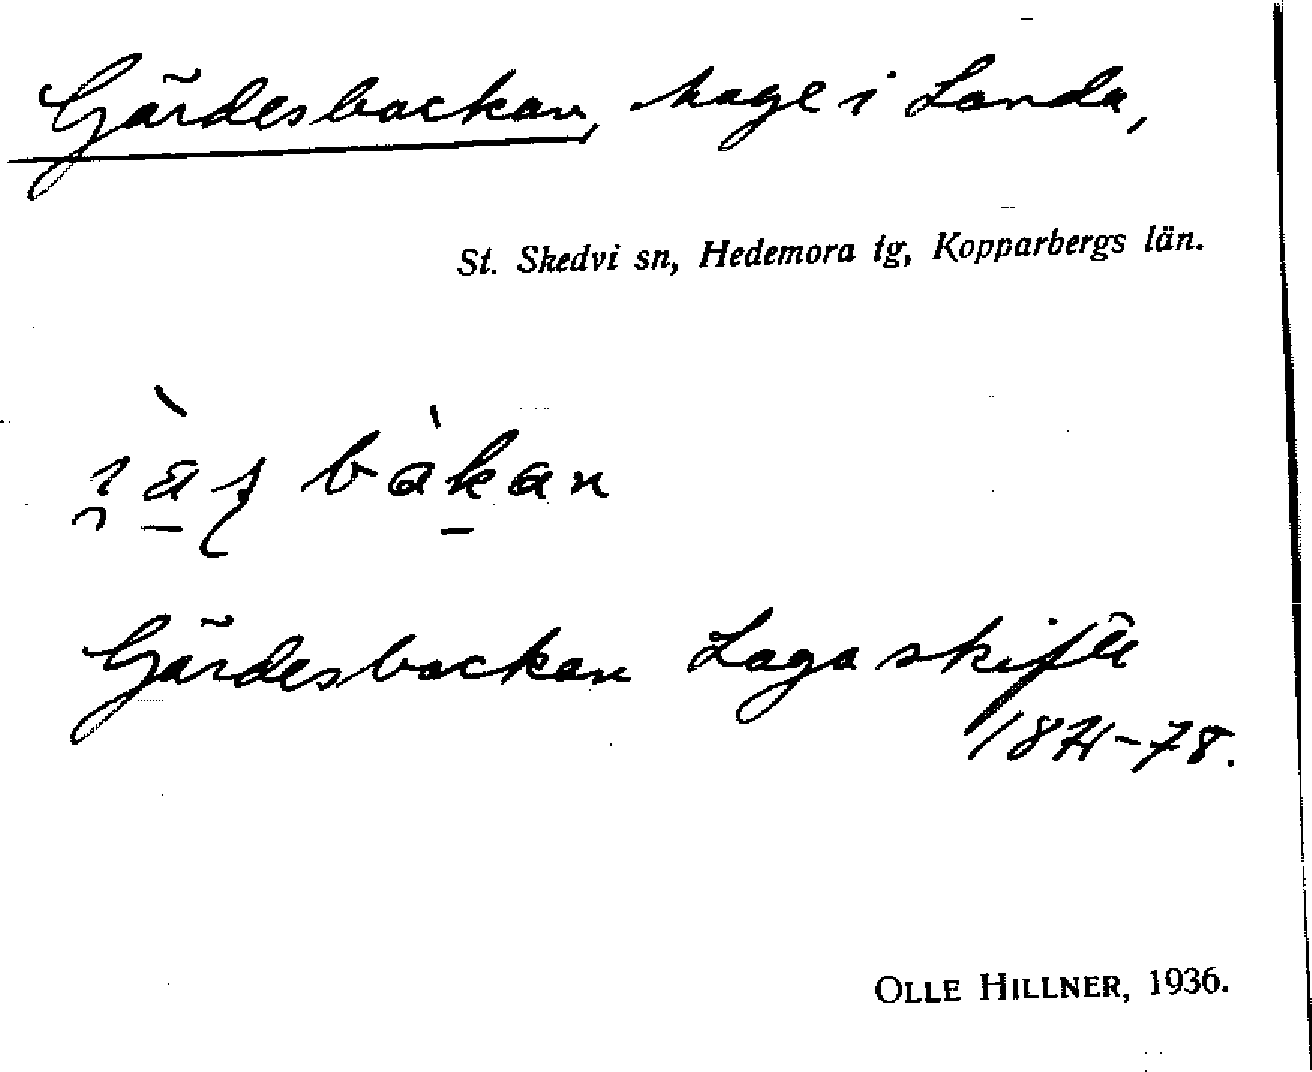 Gärdesbackan, hage i Landa,
St. Skedvi sn, Hedemora tg, Kopparbergs län.
bàkan
Gärdesbackan Laga skifte
1871-78.
OLLE HILLNER, 1936.